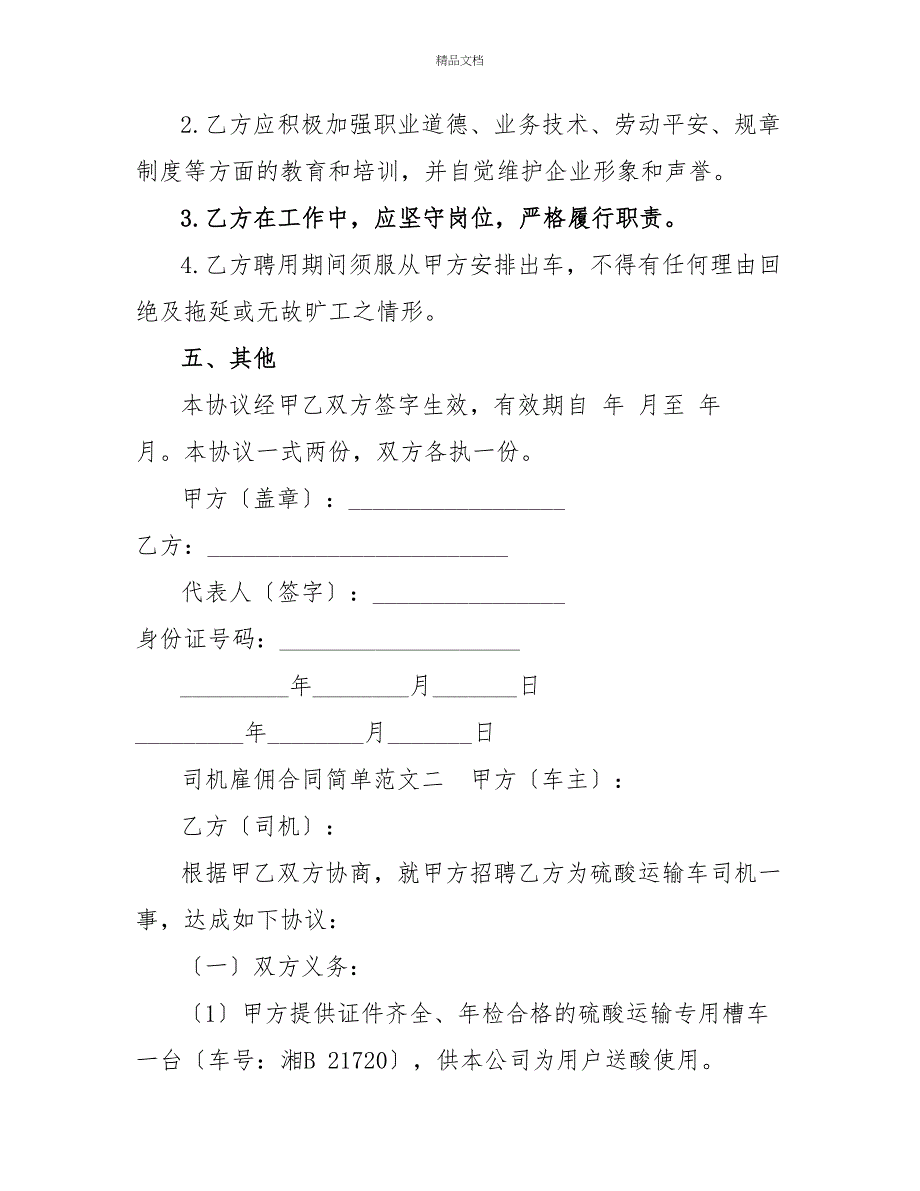 精品文档
2.乙方应积极加强职业道德、业务技术、劳动平安、规章
制度等方面的教育和培训，并自觉维护企业形象和声誉。
3.乙方在工作中，应坚守岗位，严格履行职责。
4.乙方聘用期间须服从甲方安排出车，不得有任何理由回
绝及拖延或无故旷工之情形。
五、其他
本协议经甲乙双方签字生效，有效期自 年 月至 年
月。本协议一式两份，双方各执一份。
甲方〔盖章〕：__________________
乙方：_________________________
代表人〔签字〕：________________
身份证号码：____________________
_________年________月_______日
_________年________月_______日
司机雇佣合同简单范文二 甲方〔车主〕：
乙方〔司机〕：
根据甲乙双方协商，就甲方招聘乙方为硫酸运输车司机一
事，达成如下协议：
〔一〕双方义务：
〔1〕甲方提供证件齐全、年检合格的硫酸运输专用槽车
一台〔车号：湘B 21720〕，供本公司为用户送酸使用。